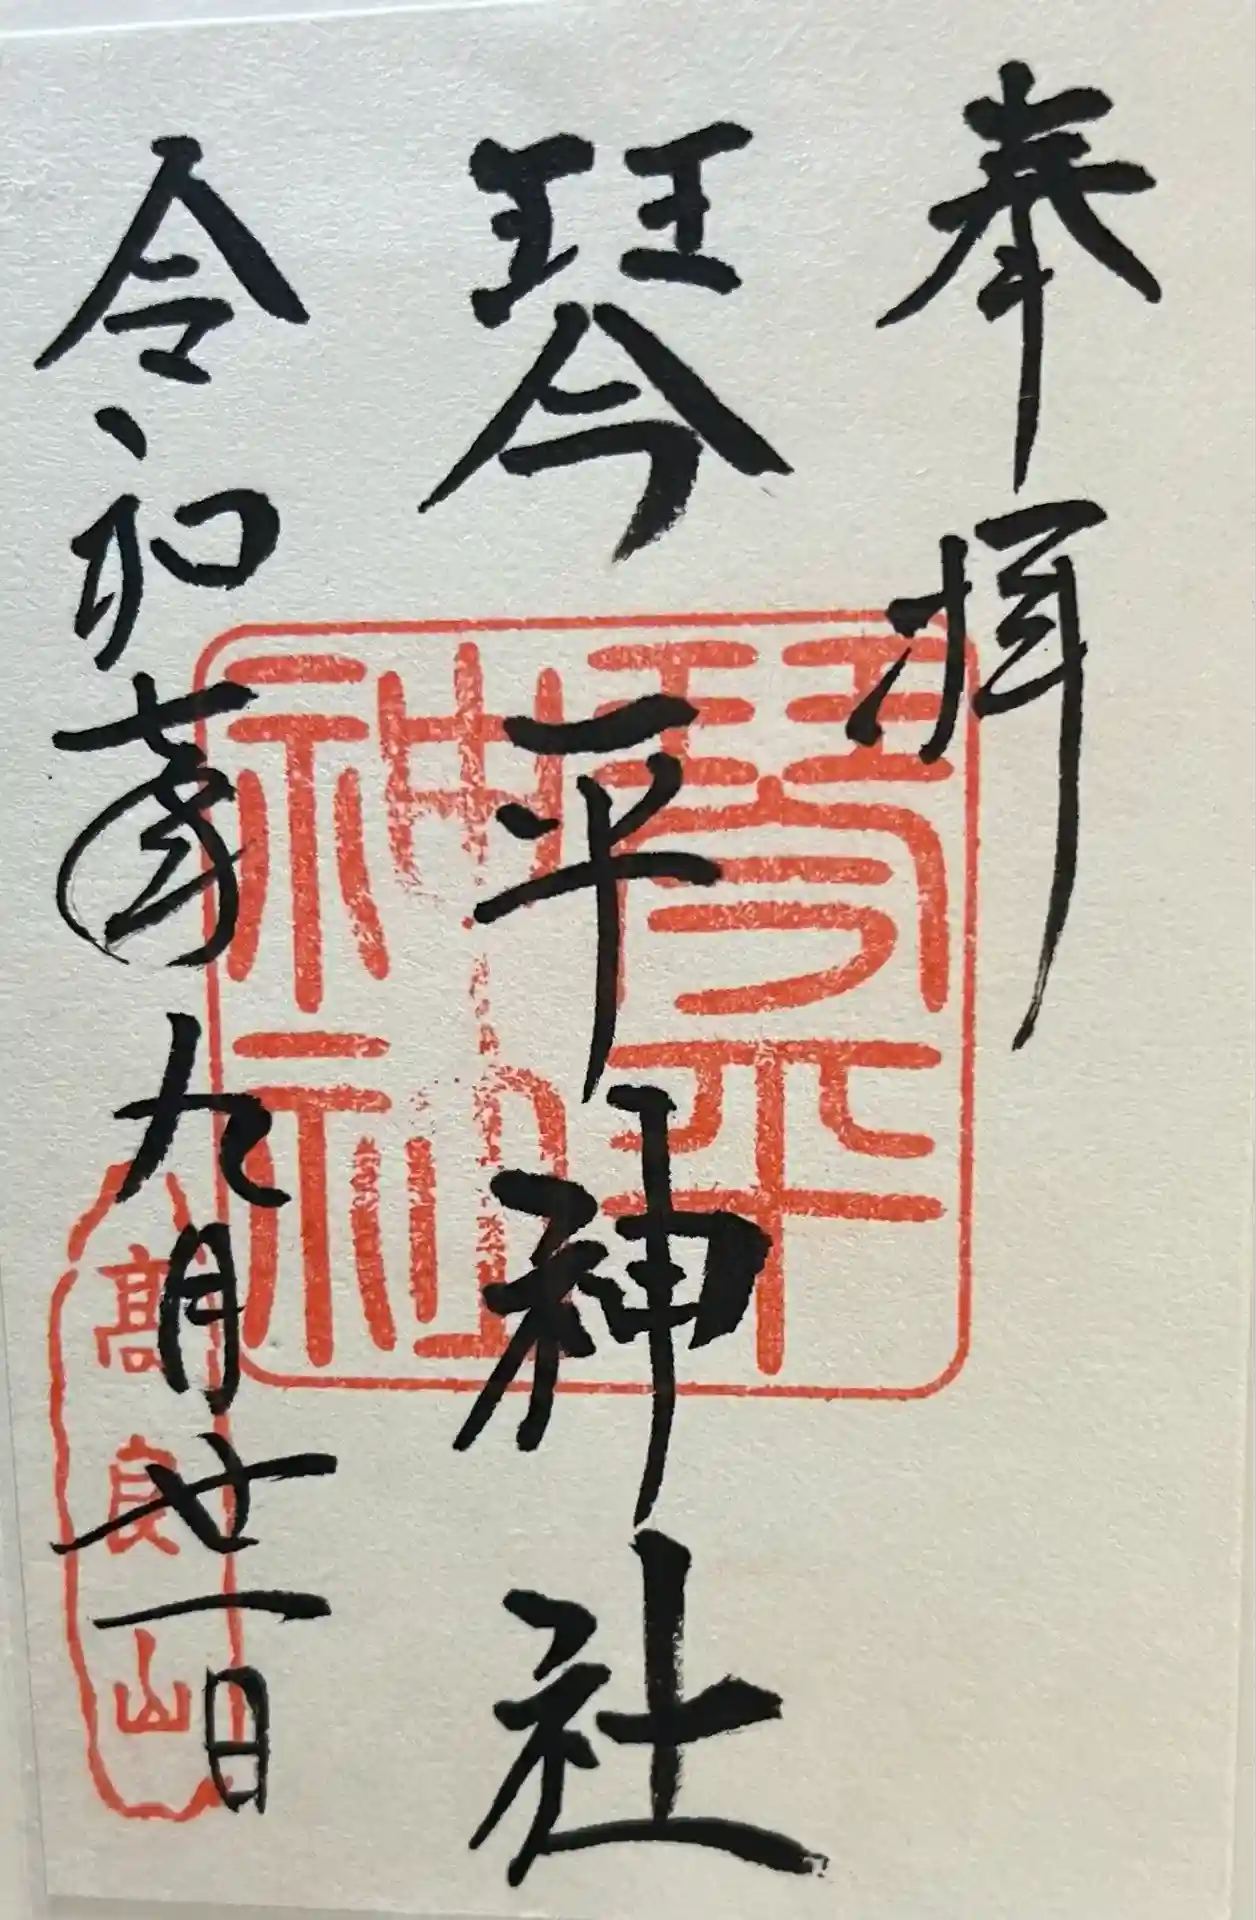 奉拝
琴平神社
令和七年九月廿一日
琴平
神社
高良山